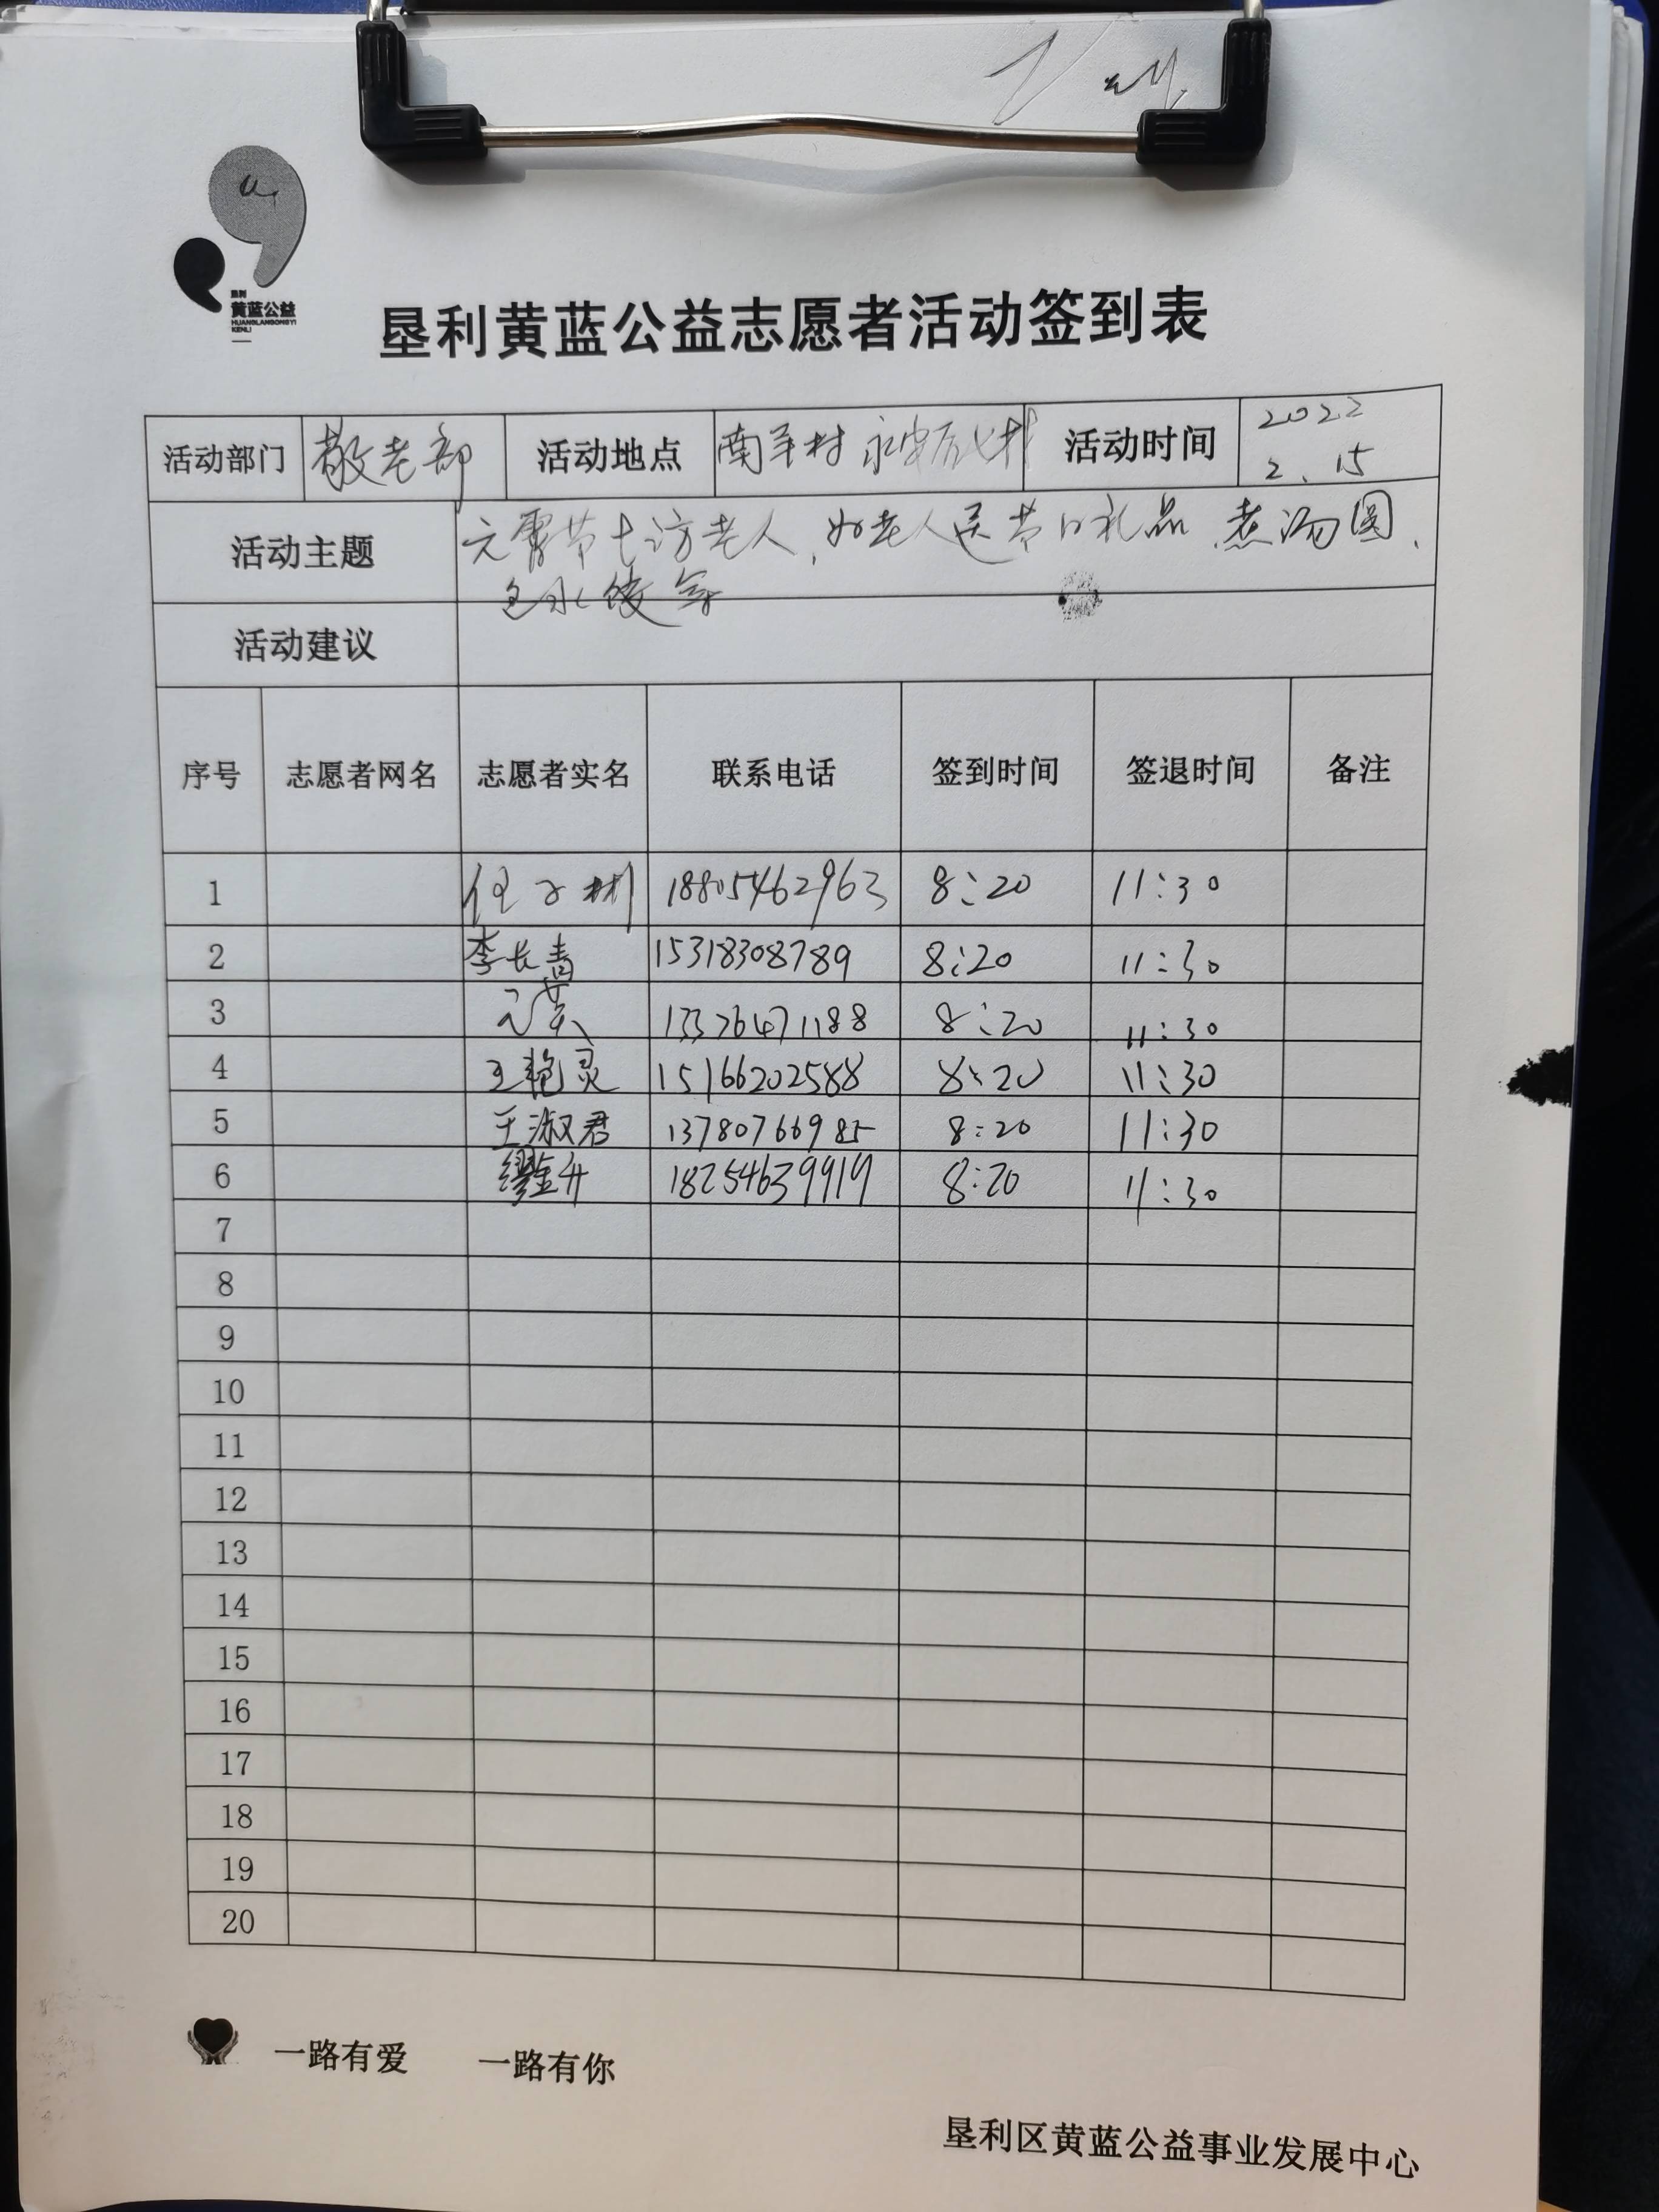 垦利
黄蓝公益
HUANGLANGONGYI
KENLI
垦利黄蓝公益志愿者活动签到表
活动部门 敬老部 活动地点 南羊村 永安 村 活动时间 2022
2.15
活动主题 元宵节 访老人, 老人送节日礼品 煮汤圆、
包水饺等
活动建议
序号 志愿者网名 志愿者实名 联系电话 签到时间 签退时间 备注
1 任子彬 18805462963 8:20 11:30
2 李长青 15318308789 8:20 11:30
3 13376471188 8:20 11:30
4 王艳灵 15166202588 8:20 11:30
5 王淑君 13780766985 8:20 11:30
6 缪金升 18254639919 8:20 11:30
7
8
9
10
11
12
13
14
15
16
17
18
19
20
一路有爱 一路有你
垦利区黄蓝公益事业发展中心